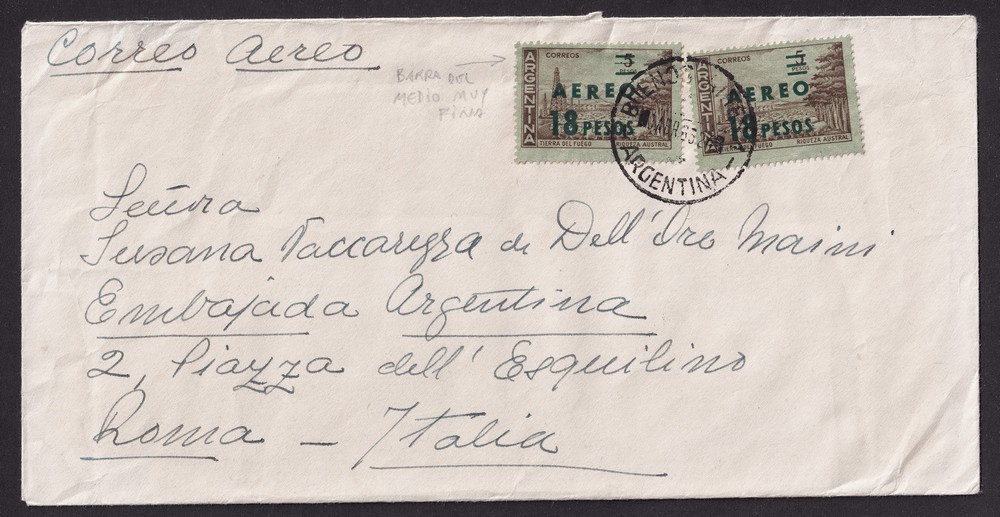 Correo Aereo
BARRA DEL
MEDIO MUY
FINA
ARGENTINA
CORREOS
5
PESOS
AEREO
18 PESOS
TIERRA DEL FUEGO RIQUEZA AUSTRAL
ARGENTINA
CORREOS
5
PESOS
AEREO
18 PESOS
RIQUEZA AUSTRAL
BUENOS AIRES
ARGENTINA
Señora
Susana Vaccarezza de Dell'Oro Maini
Embajada Argentina
2, Piazza dell' Esquilino
Roma – Italia